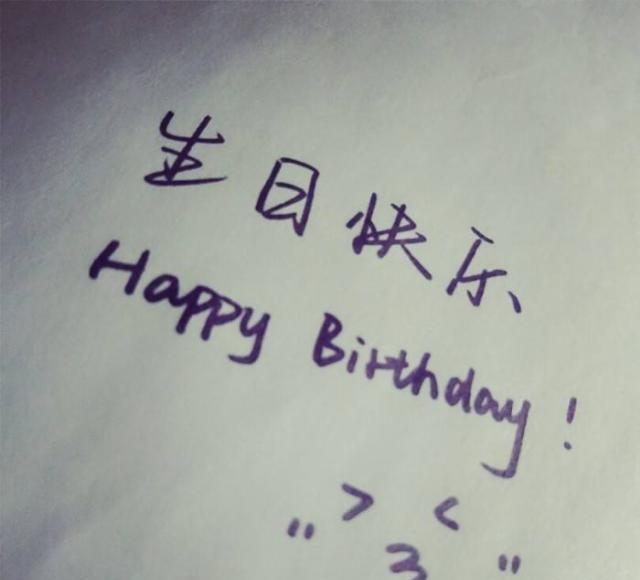 生日快乐
Happy Birthday!
" > < "
3